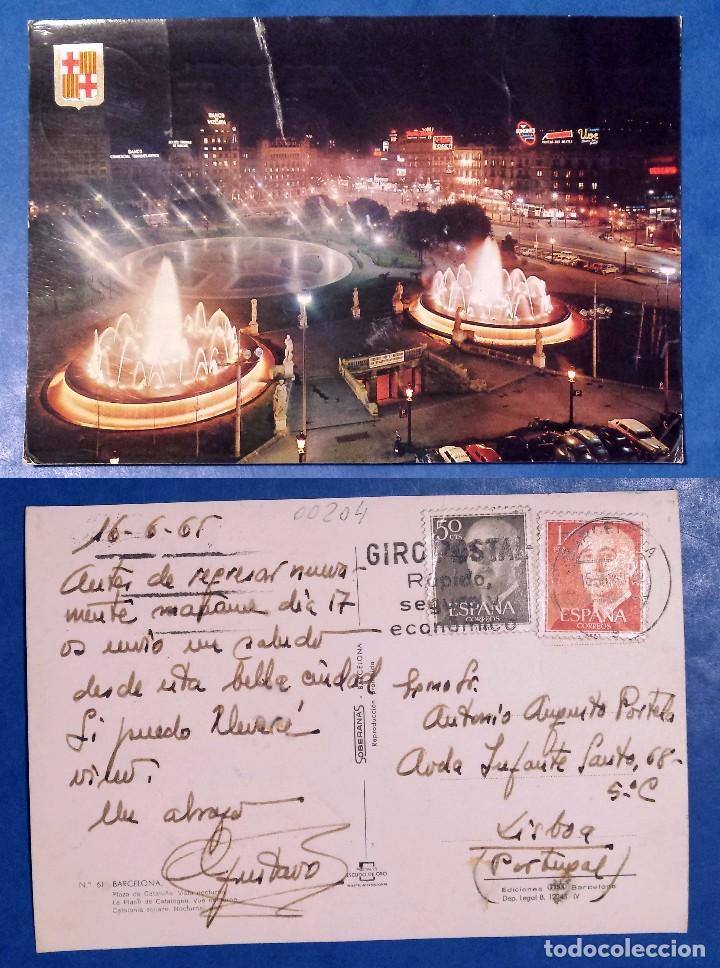 BANCO
VIZCAYA
BANCO
COMERCIAL TRANSATLANTICO
16-6-65
00204
Antes de regresar nueva-
mente mañana día 17
os envio un saludo
desde esta bella ciudad
Si puedo llevaré
vino.
Un abrazo
Gustavo
GIRO POSTAL
Rápido,
seguro y
económico
50
CTS
ESPAÑA
CORREOS
1
ESPAÑA
CORREOS
BARCELONA
SOBERANAS - BARCELONA
Reproducción prohibida
Antonio Augusto Portela
Avda Infante Santo, 68-
5.º C
Lisboa
(Portugal)
N.º 61 BARCELONA
Plaza de Cataluña. Vista nocturna
La Place de Catalogne. Vue nocturne
Catalonia square. Nocturnal
ESCUDO DE ORO
Ediciones Barcelona
Dep. Legal B. 12043-IV
todocoleccion